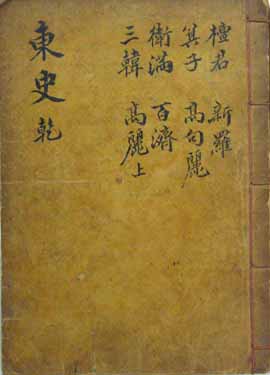 檀君 新羅
箕子 高句麗
衛滿 百濟
三韓 高麗上
東史 乾